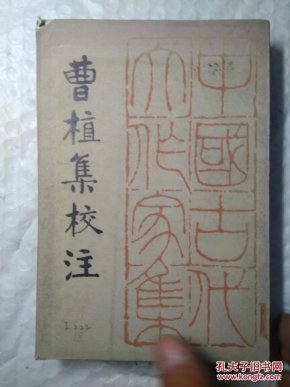 曹植集校注
中國古代
文作家集
I222
孔夫子旧书网